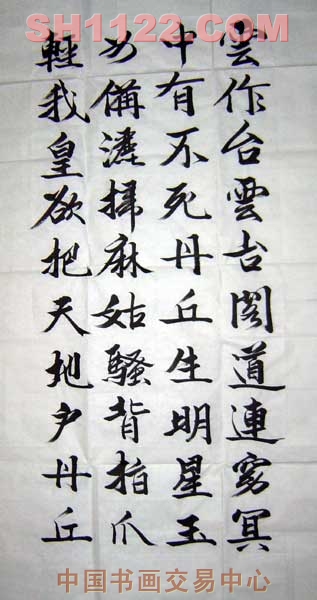 SH1122.COM
雲作台雲台閣道連窈冥
中有不死丹丘生明星玉
女備灑掃麻姑騷背指爪
輕我皇欲把天地户丹丘
中国书画交易中心